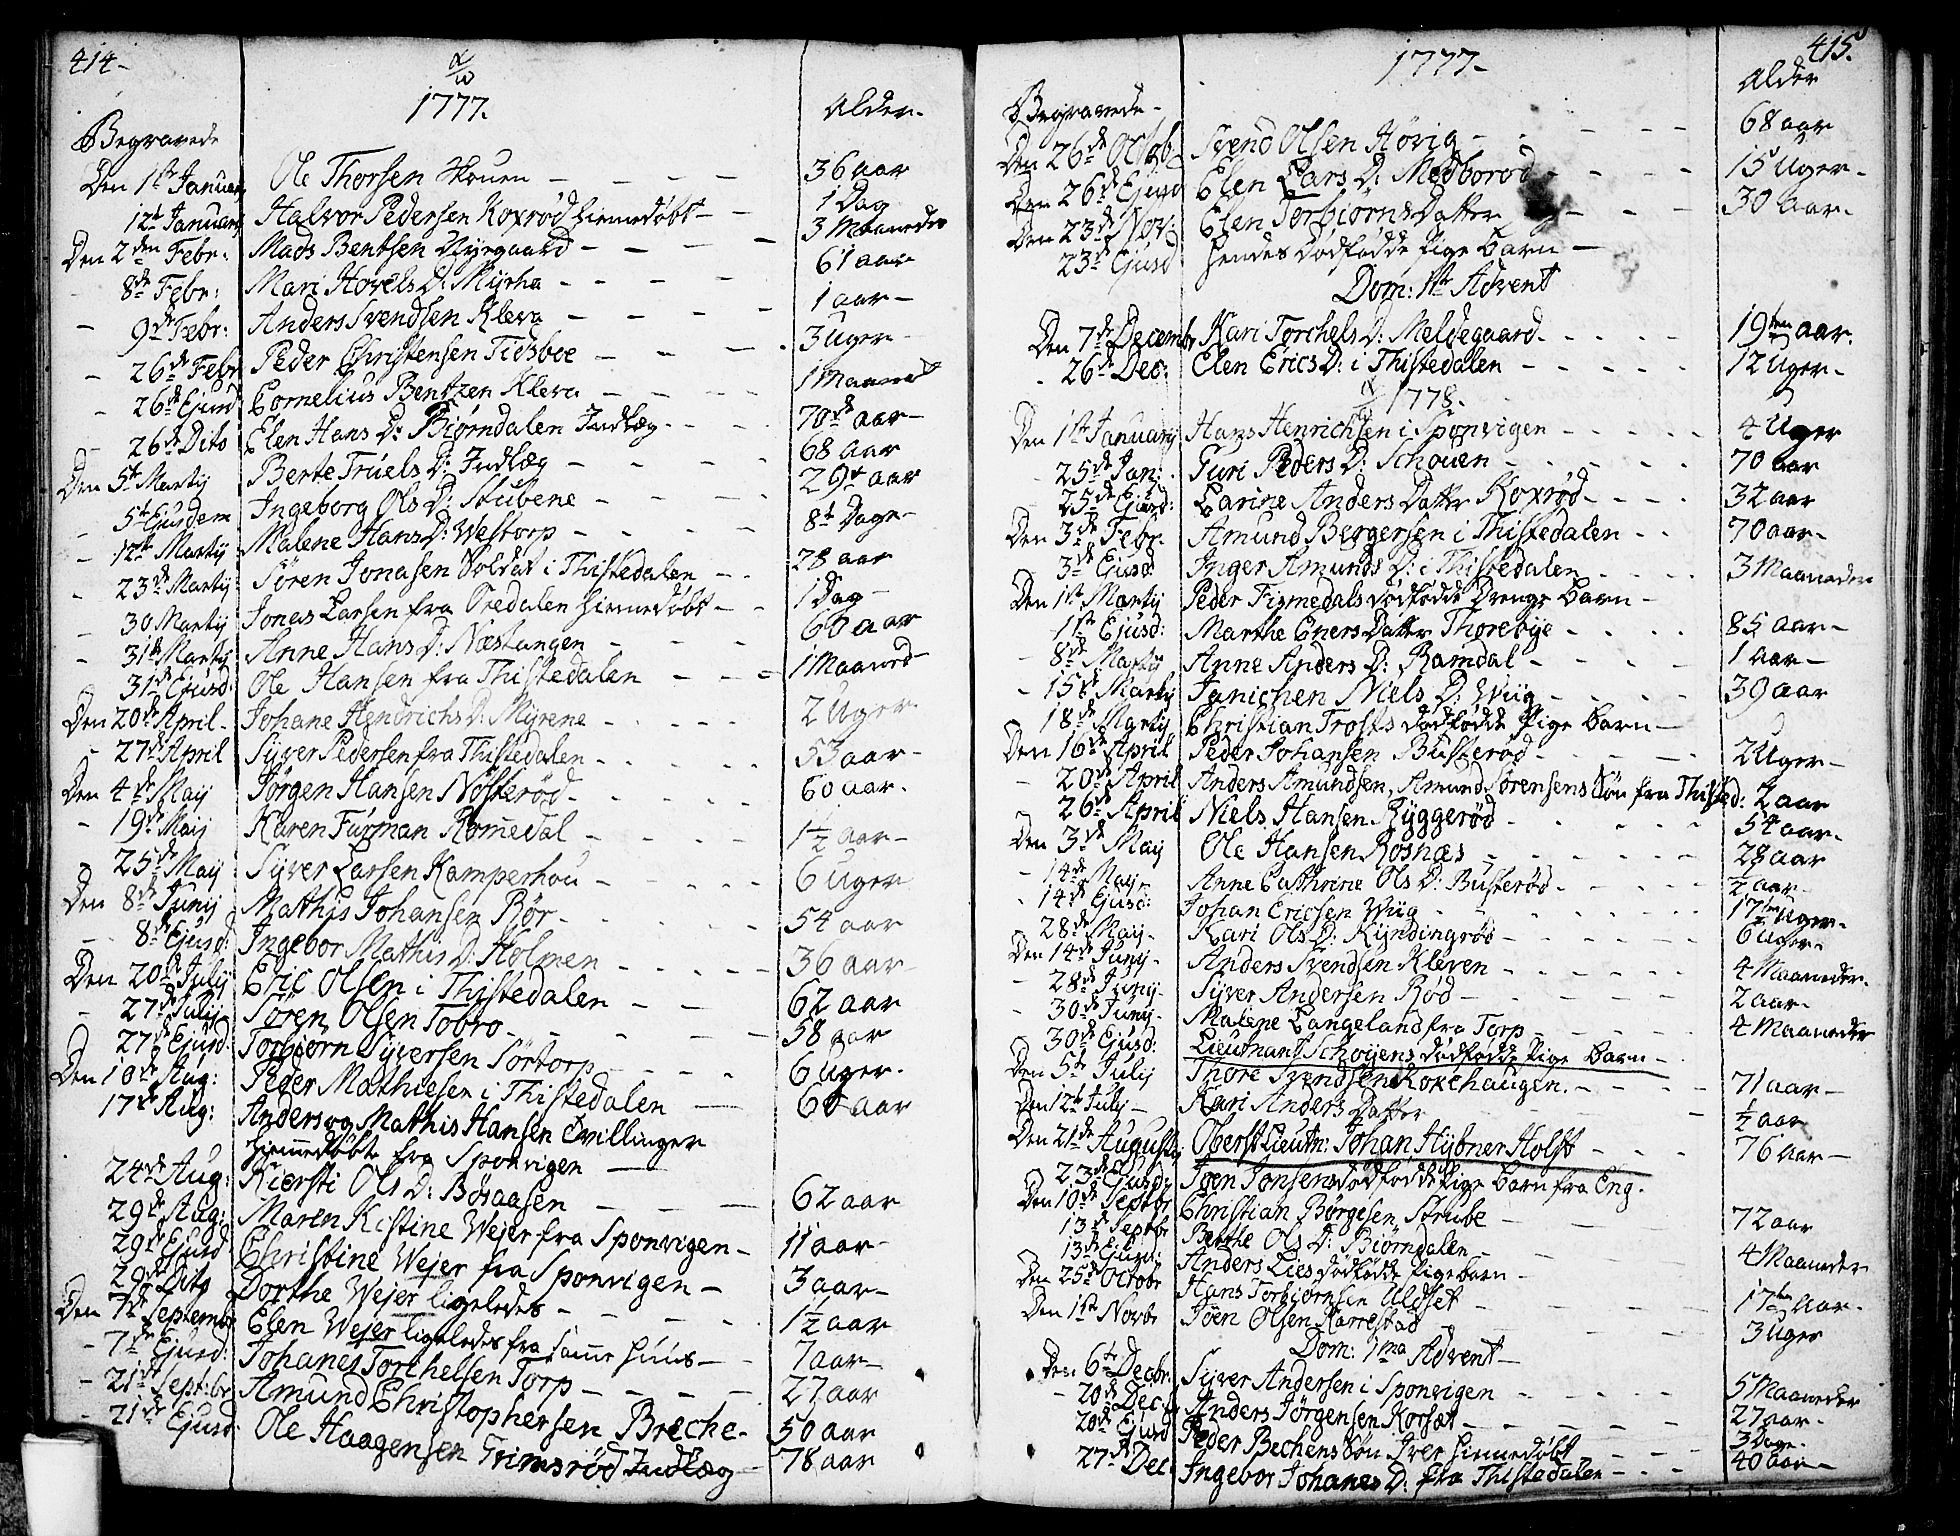 414-
α/ω
1777.
Begravede
Alder-
Den 1ste Januarij Ole Thorsen Skouen - 36 aar
12te Januarij Halvor Pedersen Koxrød hiemedøbt - 1 Dag
Den 2den Febr: Mads Bentsen Nyegaard - 3 Maaneder
8de Febr: Mari Hovels D: Myrha - 61 aar
9de Febr: Anders Svendsen Kleva - 1 aar -
26de Febr Peder Christensen Tidsboe - 3 Uger
26de Ejusd Cornelius Bentzen Kleva - 1 Maaned
26de Dito Elen Hans D: Biørndalen Indlæg - 70de aar -
Den 5te Martij Berte Truels D: Indlæg - 68 aar
5te Ejusdem Ingeborg Ols D: Stubene - 29de aar
12te Martij Malene Hans D: Westorp - 8te Dage -
23de Martij Sören Jonasen Soldat i Thistedalen - 28 aar
30 Martij Jonas Larsen fra Oredalen hiemedøbt - 1 Dag -
31te Martij Anne Hans D: Næstangen - 60 aar
31te Ejusd: Ole Hansen fra Thistedalen - 1 Maaned -
Den 20de April - Johane Hendrichs D: Myrene - 2 Uger -
27de April Syver Pedersen fra Thistedalen - 53 aar -
Den 4de Maij Jørgen Hansen Nösterød - 60 aar.
19de Maij Karen Furman Romedal - 1½ aar -
25de Maij Syver Larsen Kamperhou - 6 Uger
Den 8de Junij Mathis Johansen Rör - 54 aar
8de Ejusd: Ingebor Mathis D: Holmen - 36 aar
Den 20de Julij Eric Olsen i Thistedalen - 62 aar
27de Julij Sören Olsen Tobro - 58 aar
27de Ejusd: Torbiørn Syversen Sörtorp - 6 Uger.
Den 10de Aug: Peder Mathiesen i Thistedalen - 60 aar
17de Aug: Anders og Mathis Hansen Tvillinger
hiemedøbte fra Sponvigen
24de Aug: Kiersti Ols D: Bøsaasen - 62 aar
29de Aug: Maren Kistine Wejer fra Sponvigen - 11 aar -
29de Ejusd Christine Wejer fra Sponvigen - 3 aar -
29de Dito Dorthe Wejer ligeledes - 1½ aar
Den 7de Septembr Elen Wejer ligeledes fra samme Huus - 7 aar -
7de Ejusd: Johanes Torchelsen Torp - 27 aar
21de Septbr Amund Christophersen Breche - 50 aar
21de Ejusd: Ole Haagensen Trimsrød Indlæg - 78 aar
415.
1777-
Begravede -
Alder
Den 26de Octob. Svend Olsen Hövig - 68 aar
Den 26de Ejusd Elen Lars D: Medborød - 15 Uger -
Den 23de Nov: Elen Torbiørns Datter - 30 Aar -
23de Ejusd hendes dødfødde Pige Barn -
Dom: 1ste Advent
Den 7de Decembr Kari Torchels D: Meldegaard - 19ten aar.
26de Dec: Elen Erics D: i Thistedalen - 12 Uger -
α/ω 1778.
Den 1ste Januarij Hans Henrichsen i Sponvigen - 4 Uger
25de Jan: Guri Peders D: Schouen - 70 aar
25de Ejusd: Carine Anders Datter Koxrød - 32 aar
Den 3de Febr Amund Bergersen i Thistedalen - 70 aar -
3de Ejusd: Inger Amunds D: i Thistedalen - 3 Maaneder
Den 1ste Martij Peder Figmedals dødfødde Drenge Barn -
1ste Ejusd: Marthe Eners Datter Thorebye - 85 aar -
8de Martij Anne Anders D: Ramdal - 1 aar -
15de Martij Janichen Niels D: Wiig - 39 aar
18de Martij Christian Trosts dødfødde Pige Barn -
Den 16de April Peder Johansen Busterød - 2 Uger -
20de April Anders Amundsen, Amund Sørensens Søn fra Thisted: 2 aar
26de April Niels Hansen Ryggerød - 54 aar -
Den 3de Maij Ole Hansen Rosnæs - 28 aar
14de Maij - Anne Cathrine Ols D: Busterød - ½ aar -
14de Ejusd: Johan Ericsen Wiig - 17ten Uger -
28de Maij - Kari Ols D: Kyndingrød - 6 Uger -
Den 14de Junij - Anders Svendsen Kleven - 4 Maaneder -
28de Junij - Syver Andersen Rød - 2 aar -
30de Junij - Malene Langeland fra Torp - 4 Maaneder
30de Ejusd: Lieutnant Schøyens dødfødde Pige Barn -
Den 5te Julij Thore Svendsen Rokehaugen - 71 aar -
Den 12te Julij - Kari Anders Datter - ½ aar
Den 21de Augustij Oberst Lieutn: Johan Hybner Holst - 76 Aar -
23de Ejusd: Joen Jonsens dødfødde Pige Barn fra Eng.
Den 10de Septbr Christian Börgesen Strube - 72 aar
13de Septbr Berthe Ols D: Biørndalen - 4 Maaneder
13de Ejusd: Anders Lies dødfødde Pige Barn -
Den 25de Octobr Hans Torbiørnsen Uldset - 17ten Aar -
Den 1ste Novbr Joen Olsen Karrestad - 3 Uger
Dom: 1ma Advent -
Den 6te Decbr Syver Andersen i Sponvigen - 5 Maaneder
20de Dec: Anders Jörgensen Korsæt - 27 aar -
20de Ejusd Peder Bechens Søn Iver hiemedøbt - 3 Dage -
27de Dec: Ingebor Johanes D: fra Thistedalen - 40 aar -